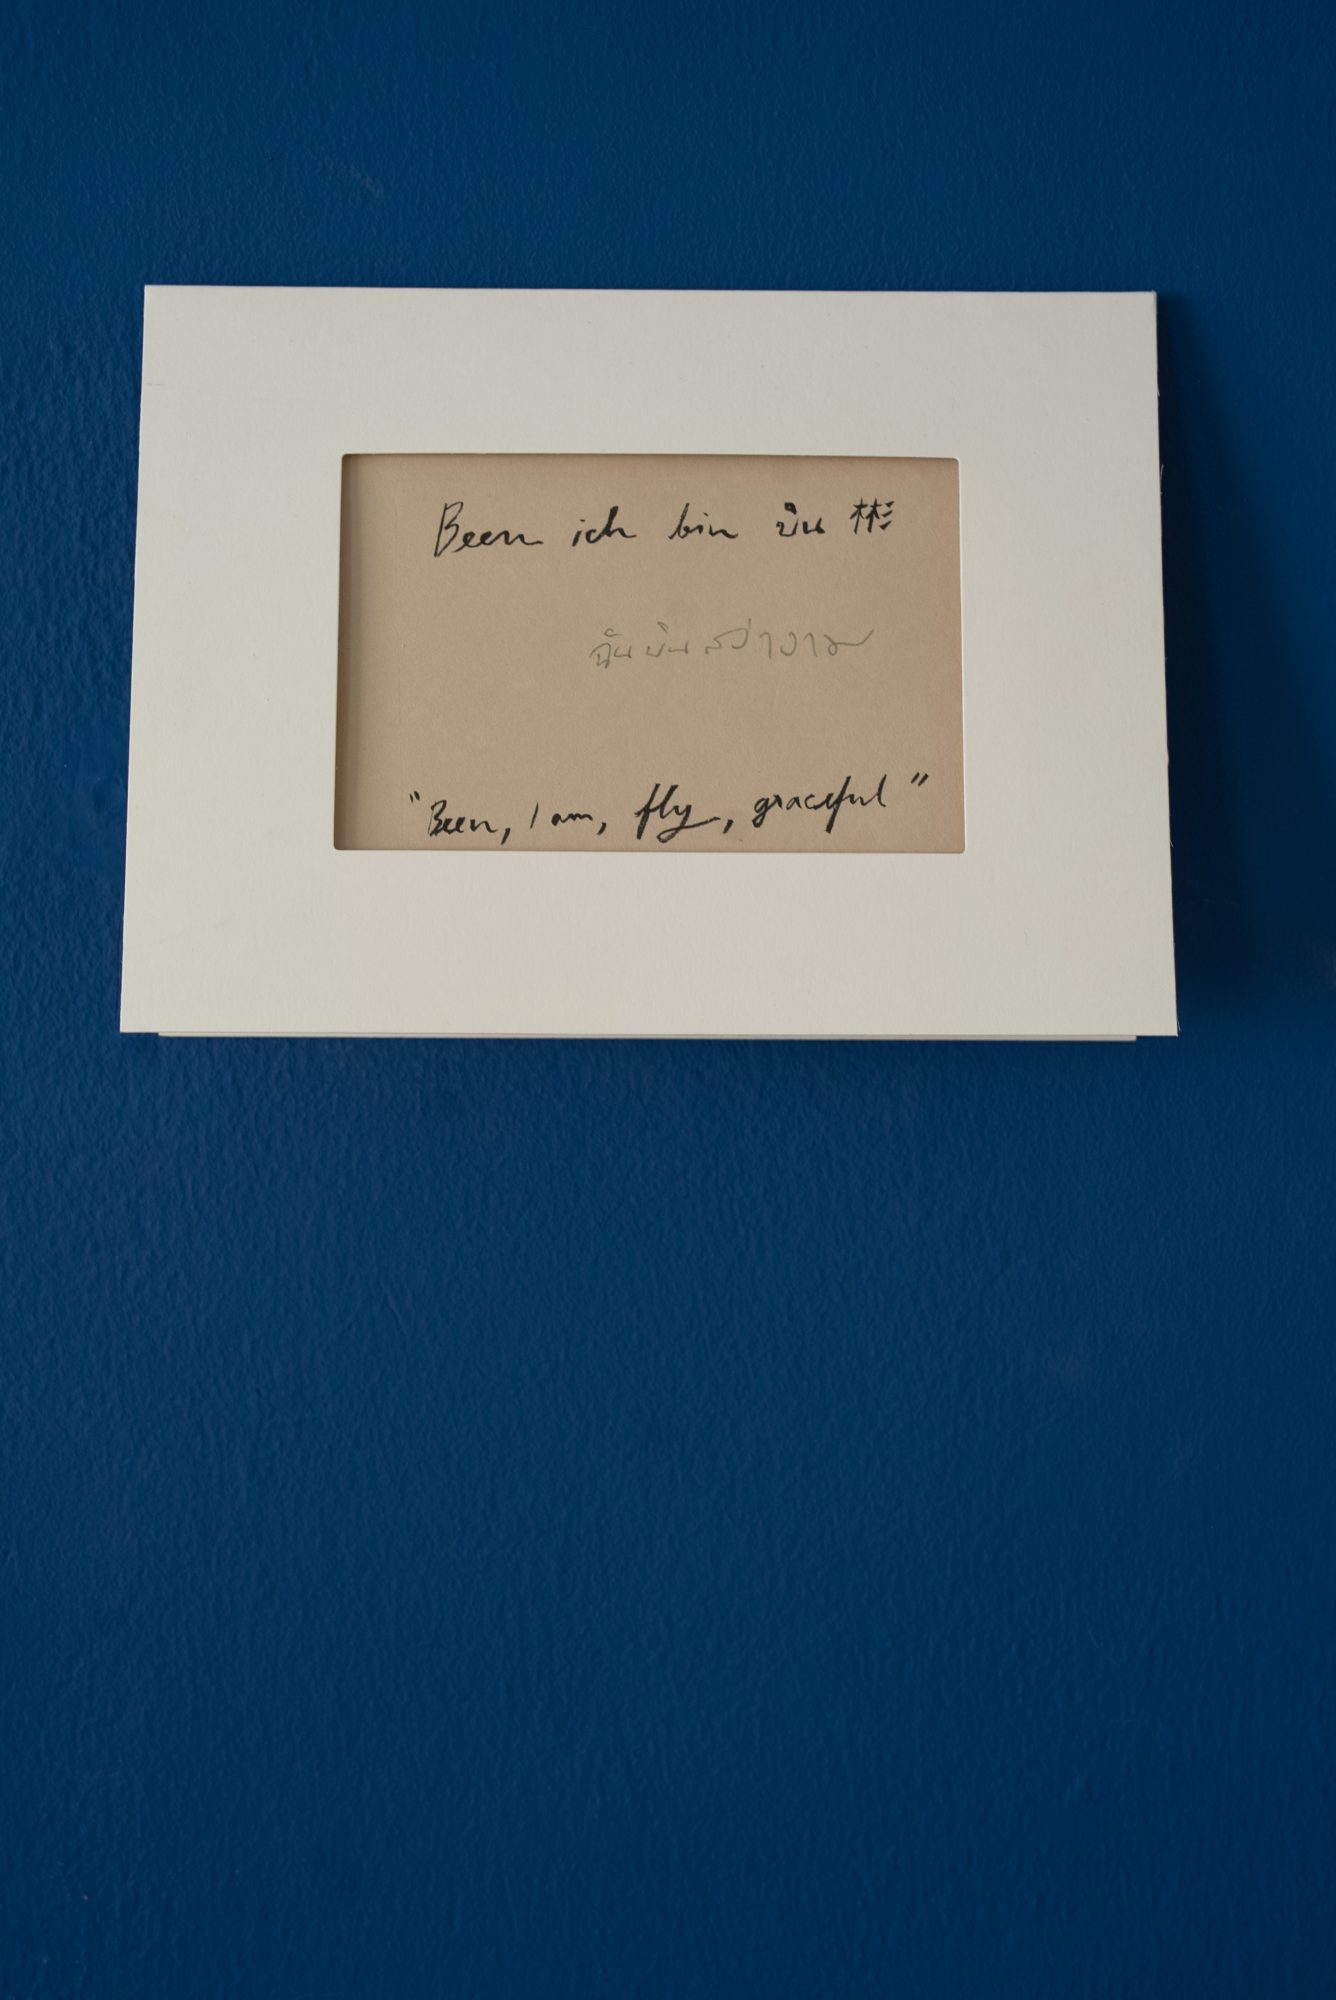 Been ich bin บิน 彬
ฉันบินสง่างาม
"Been, I am, fly, graceful"